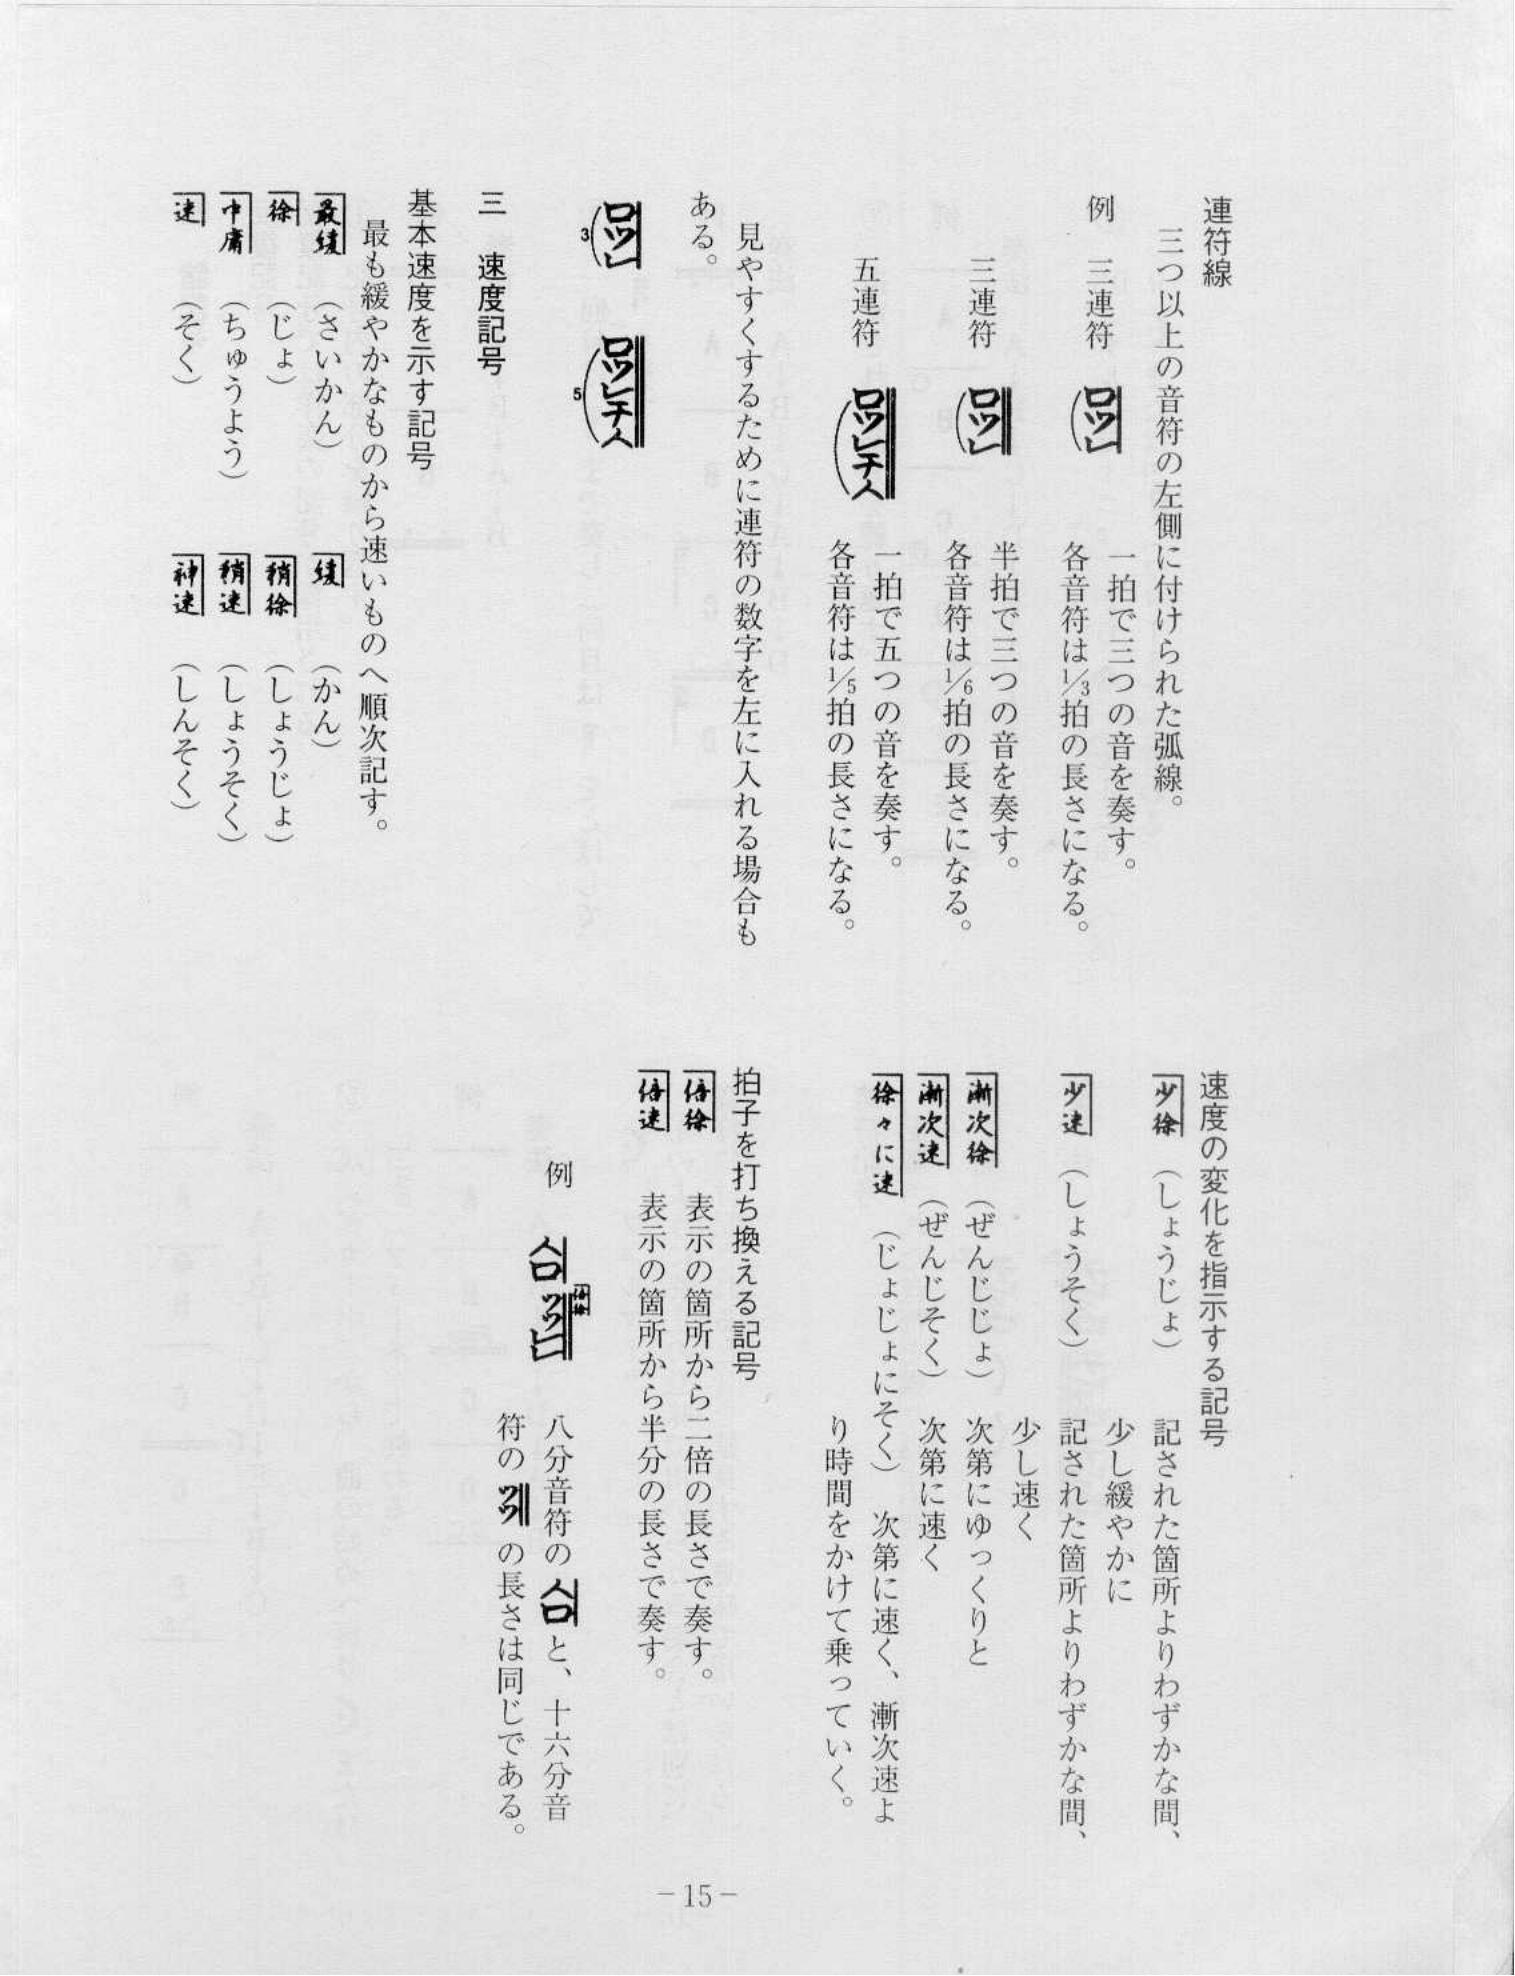 連符線
三つ以上の音符の左側に付けられた弧線。
例 三連符 ロツレ 一拍で三つの音を奏す。
各音符は1/3拍の長さになる。
三連符 ロツレ 半拍で三つの音を奏す。
各音符は1/6拍の長さになる。
五連符 ロツレチ 一拍で五つの音を奏す。
各音符は1/5拍の長さになる。
見やすくするために連符の数字を左に入れる場合も
ある。
3 ロツレ 5 ロツレチ
三 速度記号
基本速度を示す記号
最も緩やかなものから速いものへ順次記す。
最緩 (さいかん) 緩 (かん)
徐 (じょ) 稍徐 (しょうじょ)
中庸 (ちゅうよう) 稍速 (しょうそく)
速 (そく) 神速 (しんそく)
速度の変化を指示する記号
少徐 (しょうじょ) 記された箇所よりわずかな間、
少し緩やかに
少速 (しょうそく) 記された箇所よりわずかな間、
少し速く
漸次徐 (ぜんじじょ) 次第にゆっくりと
漸次速 (ぜんじそく) 次第に速く
徐々に速 (じょじょにそく) 次第に速く、漸次速よ
り時間をかけて乗っていく。
拍子を打ち換える記号
倍徐 表示の箇所から二倍の長さで奏す。
倍速 表示の箇所から半分の長さで奏す。
例 倍徐
八分音符の と、十六分音
符の の長さは同じである。
－15－